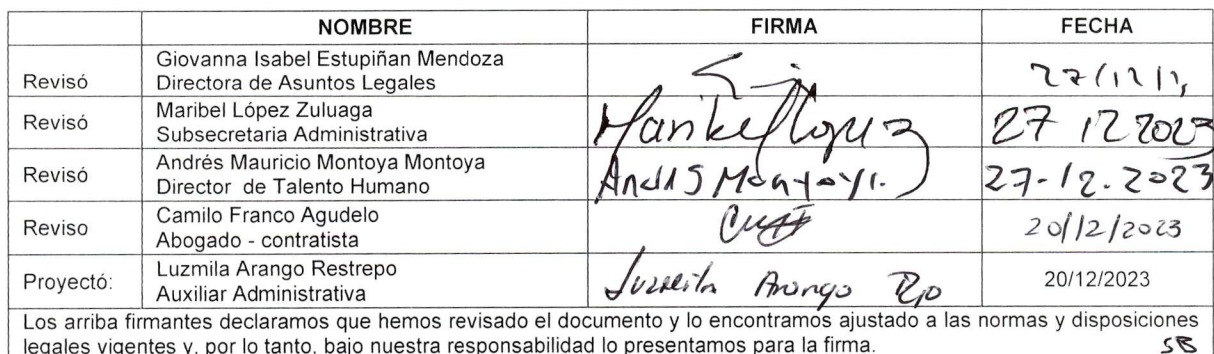 NOMBRE FIRMA FECHA
Giovanna Isabel Estupiñan Mendoza
Revisó Directora de Asuntos Legales 27/12/
Maribel López Zuluaga
Revisó Subsecretaria Administrativa Maribel López 27 12 2023
Andrés Mauricio Montoya Montoya
Revisó Director de Talento Humano Andrés Montoya. 27-12-2023
Camilo Franco Agudelo
Reviso Abogado - contratista 20/12/2023
Luzmila Arango Restrepo
Proyectó: Auxiliar Administrativa Luzmila Arango Rpo 20/12/2023
Los arriba firmantes declaramos que hemos revisado el documento y lo encontramos ajustado a las normas y disposiciones
legales vigentes y, por lo tanto, bajo nuestra responsabilidad lo presentamos para la firma. SB